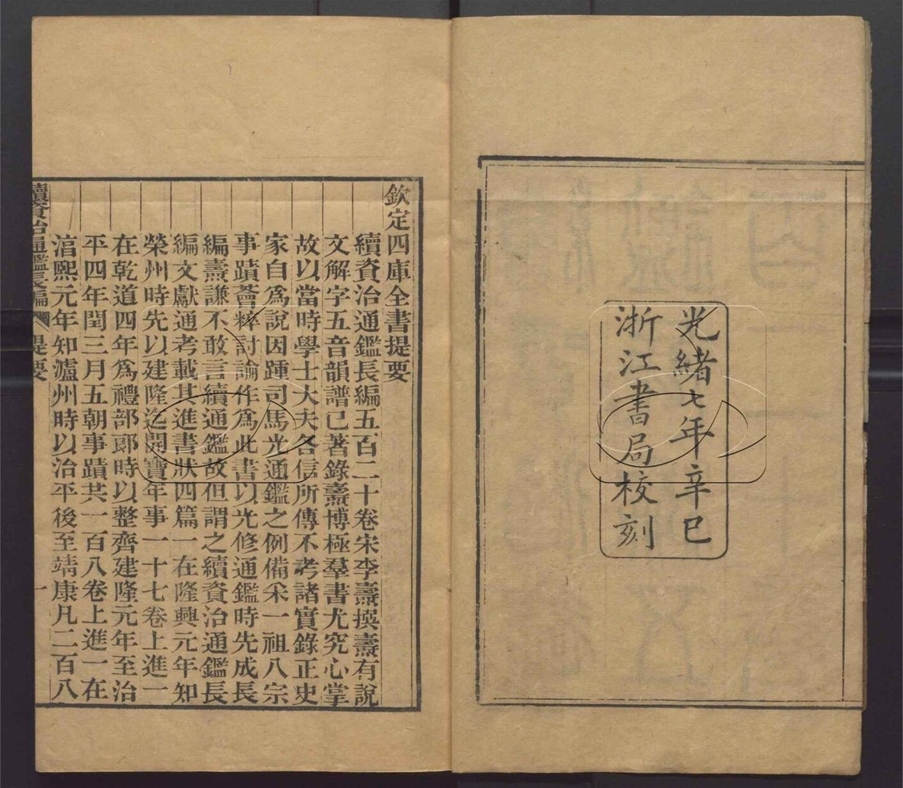 光緒七年辛巳
浙江書局校刻
欽定四庫全書提要
續資治通鑑長編五百二十卷宋李燾撰燾有說
文解字五音韻譜已著錄燾博極羣書尤究心掌
故以當時學士大夫各信所傳不考諸實錄正史
家自爲說因踵司馬光通鑑之例備采一祖八宗
事蹟薈稡討論作爲此書以光修通鑑時先成長
編燾謙不敢言續通鑑故但謂之續資治通鑑長
編文獻通考載其進書狀四篇一在隆興元年知
榮州時先以建隆迄開寶年事一十七卷上進一
在乾道四年爲禮部郎時以整齊建隆元年至治
平四年閏三月五朝事蹟共一百八卷上進一在
淯熙元年知瀘州時以治平後至靖康凡二百八
續資治通鑑長編 提要 一